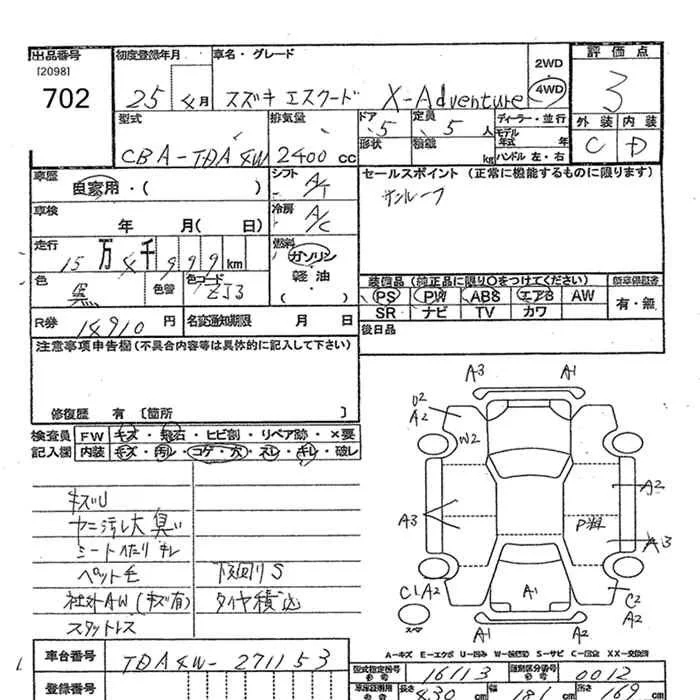 出品番号
[2098]
702
初度登録年月
25 4月
車名・グレード
スズキ エスクード X-Adventure
2WD
4WD
評価点
3
外装 内装
C D
型式
CBA-TDA4W
排気量
2400 cc
ドア
5
定員
5 人
形状
積載
kg
ディーラー・並行
モデル年式 年
ハンドル 左・右
車歴
自家用・( )
シフト
A/T
セールスポイント (正常に機能するものに限ります)
サンルーフ
車検
年 月( 日)
冷房
A/C
走行
15万4千999km
燃料
ガソリン
軽油
( )
色
黒
色替
色コード
ZJ3
装備品 (純正品に限り○をつけてください)
PS PW ABS エアB AW
SR ナビ TV カワ
新車保証書
有・無
R券 14910 円
名変通知期限 月 日
後日品
注意事項申告欄 (不具合内容等は具体的に記入して下さい)
修復歴 有 [箇所 ]
検査員記入欄
FW キズ・飛石・ヒビ割・リペア跡・×要
内装 キズ・汚レ・コゲ・穴・スレ・キレ・破レ
キズU
ヤニ汚レ大 臭い
シートヘたり キレ
ペット毛
社外AW (キズ有)
スタットレス
下廻りS
タイヤ積込
A3 A1
U2
A2
W2
A3
A2
P料
A3
C1 A2
A1
C2
A2
スペア
A2
A2
A-キズ E-エクボ U-凹み W-波修跡 S-サビ C-腐食 XX-交換済
車台番号 TDA4W-271153
登録番号
型式指定番号 参考 16113
類別区分番号 参考 0012
長さ 430 cm
幅 181 cm
高さ 169 cm